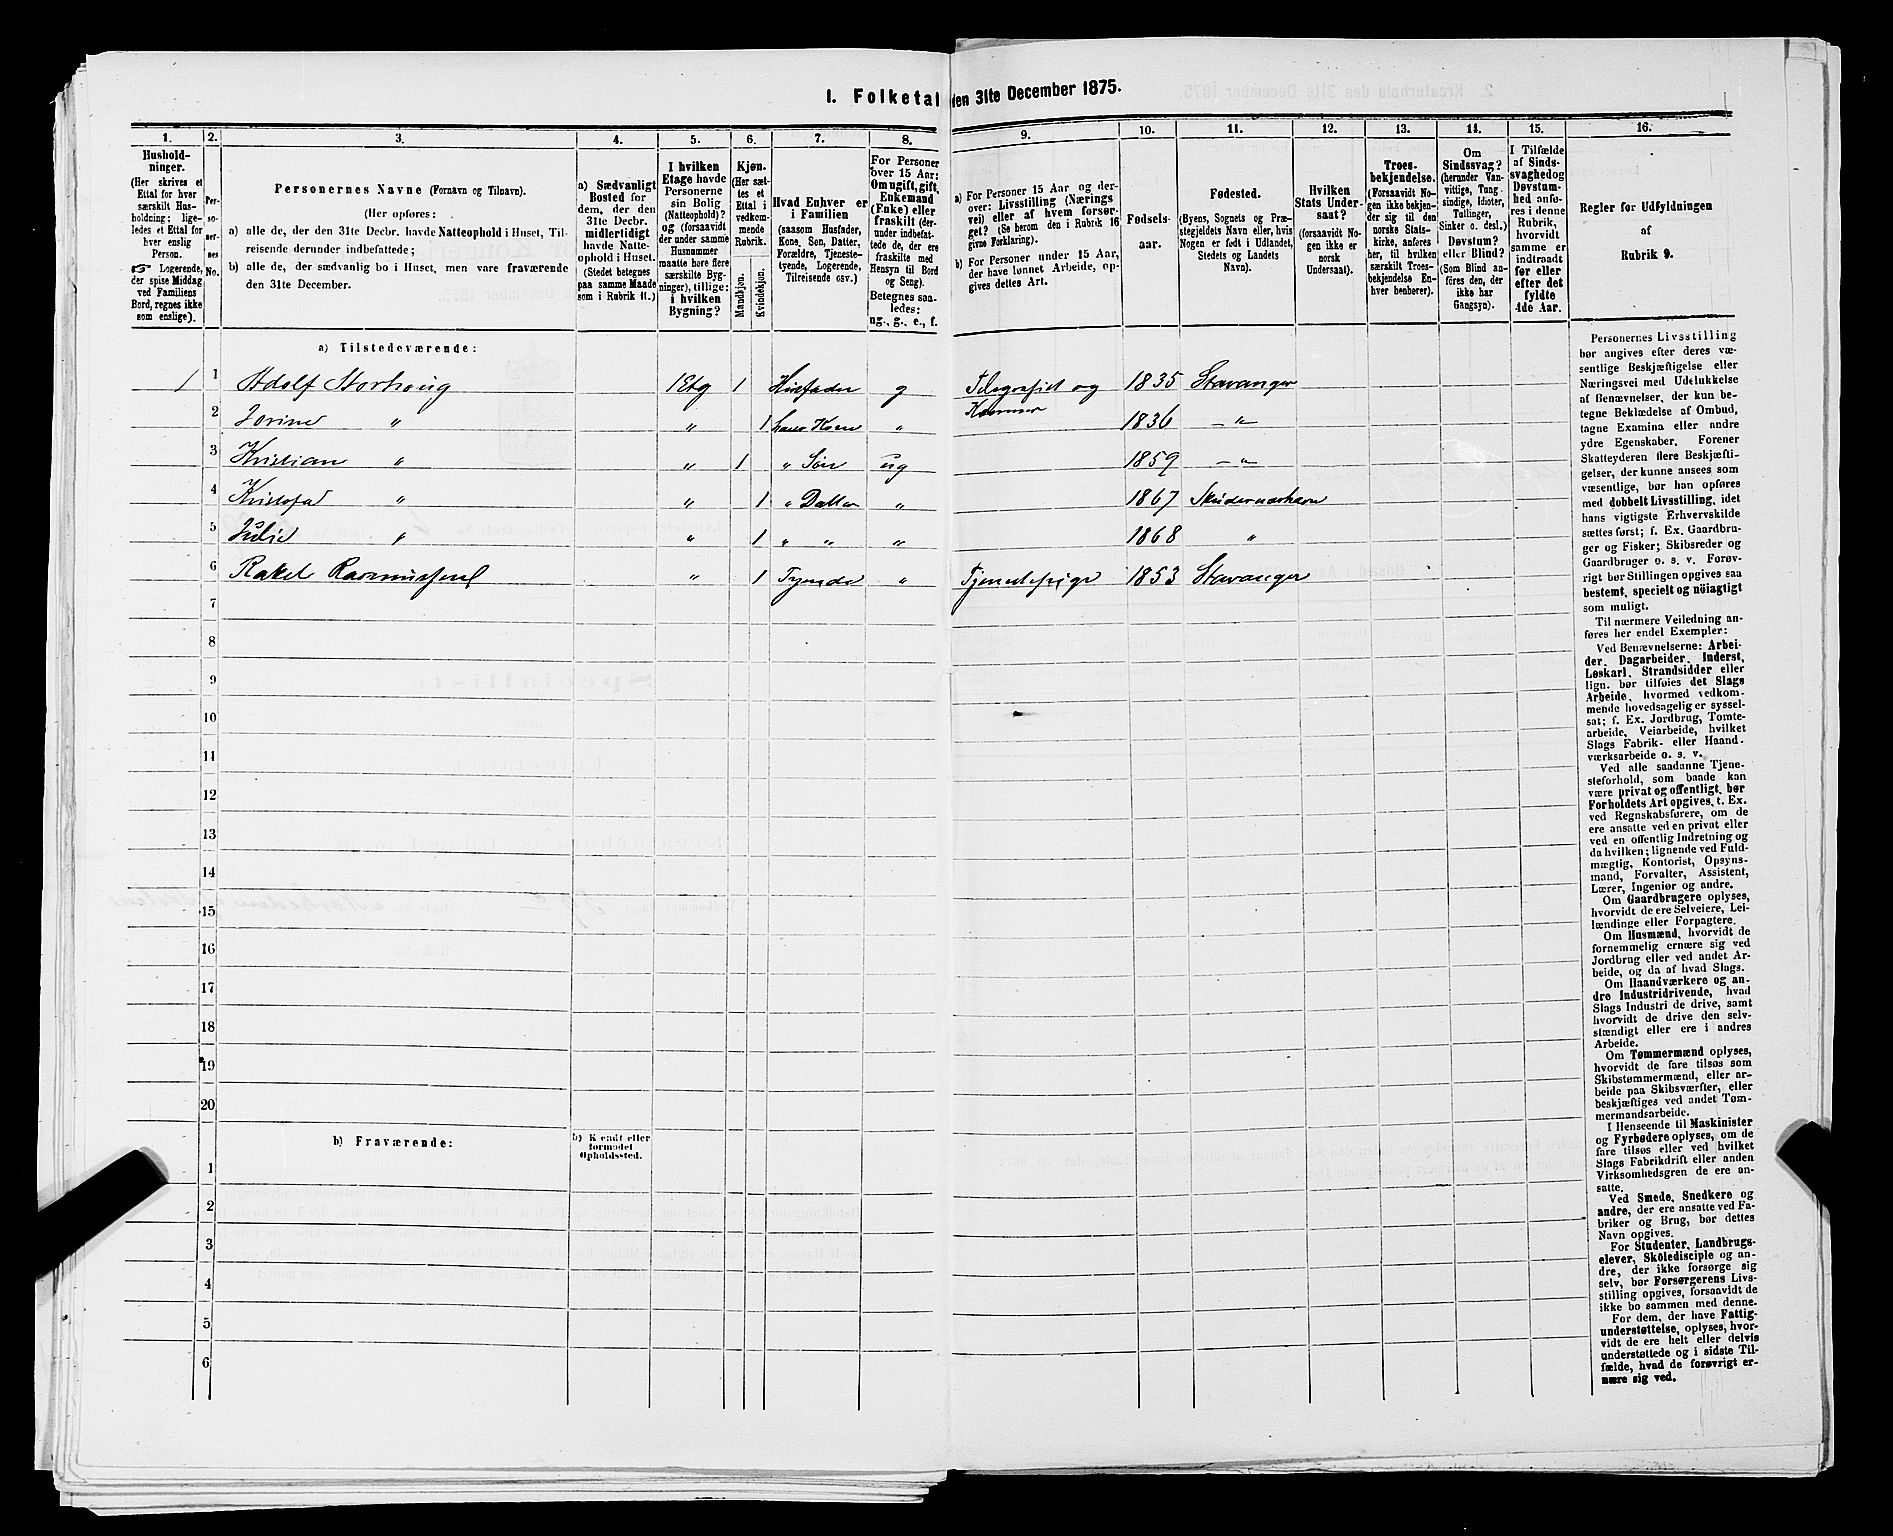 I. Folketal den 31te December 1875.
1. 2. 3. 4. 5. 6. 7. 8. 9. 10. 11. 12. 13. 14. 15. 16.
Hushold-
ninger.
(Her skrives et
Ettal for hver
særskilt Hus-
holdning; lige-
ledes et Ettal for
hver enslig
Person.
☞ Logerende,
der spise Middag
ved Familiens
Bord, regnes ikke
som enslige).
Per-
so-
ner-
nes
No.
Personernes Navne (Fornavn og Tilnavn).
(Her opføres:
a) alle de, der den 31te Decbr. havde Natteophold i Huset, Til-
reisende derunder indbefattede;
b) alle de, der sædvanlig bo i Huset, men vare fraværende
den 31te December.
a) Sædvanligt
Bosted for
dem, der den
31te Decbr.
midlertidigt
havde Natte-
ophold i Huset.
(Stedet betegnes
paa samme Maade
som i Rubrik 11.)
I hvilken
Etage havde
Personerne
sin Bolig
(Natteophold)?
og (forsaavidt
der under samme
Husnummer
maatte høre flere
særskilte Byg-
ninger), tillige:
i hvilken
Bygning?
Kjøn.
(Her sæt-
tes et
Ettal i
vedkom-
mende
Rubrik.
Mandkjøn.
Kvindekjøn.
Hvad Enhver er
i Familien
(saasom Husfader,
Kone, Søn, Datter,
Forældre, Tjeneste-
tyende, Logerende,
Tilreisende osv.)
For Personer
over 15 Aar:
Om ugift, gift,
Enkemand
(Enke) eller
fraskilt (der-
under indbefat-
tede de, der ere
fraskilte med
Hensyn til Bord
og Seng).
Betegnes saa-
ledes:
ug., g., e., f.
a) For Personer 15 Aar og der-
over: Livsstilling (Nærings
vei) eller af hvem forsør-
get? (Se herom den i Rubrik 16
givne Forklaring).
b) For Personer under 15 Aar,
der have lønnet Arbeide, op-
gives dettes Art.
Fødsels-
aar.
Fødested.
(Byens, Sognets og Præ-
stegjeldets Navn eller, hvis
Nogen er født i Udlandet,
Stedets og Landets
Navn).
Hvilken
Stats Under-
saat?
(forsaavidt No-
gen ikke er
norsk
Undersaat).
Troes-
bekjendelse.
(Forsaavidt No-
gen ikke bekjen-
der sig til den
norske Stats-
kirke, anføres
her, til hvilken
særskilt Troes-
bekjendelse En-
hver henhører).
Om
Sindssvag?
(herunder Van-
vittige, Tung
sindige, Idioter,
Tullinger,
Sinker o. desl.)
Døvstum?
eller Blind?
(Som Blind an-
føres den, der
ikke har
Gangsyn).
I Tilfælde
af Sinds-
svaghed og
Døvstum-
hed anfø-
res i denne
Rubrik,
hvorvidt
samme er
indtraadt
før eller
efter det
fyldte
4de Aar.
Regler for Udfyldningen
af
Rubrik 9.
a) Tilstedeværende:
1 1 Adolf Storhoug 1 Etg 1 Husfader g Telegrafist og 1835 Stavanger
2 Jorine " " 1 hans Kone " 1836 – " –
3 Kristian " " 1 " Søn ug 1859 – "
4 " " 1 " Datter " 1867
5 Julie " " 1 " " " 1868 "
6 Rakel Rasmussen " 1 Tyende " Tjenestepige 1853 Stavanger
7
8
9
10
11
12
13
14
15
16
17
18
19
20
b) Fraværende:
b) Kjendt eller
formodet
Opholdssted.
1
2
3
4
5
6
Personernes Livsstilling
bør angives efter deres væ-
sentlige Beskjæftigelse eller
Næringsvei med Udelukkelse
af Benævnelser, der kun be-
tegne Beklædelse af Ombud,
tagne Examina eller andre
ydre Egenskaber. Forener
Skatteyderen flere Beskjæfti-
gelser, der kunne ansees som
væsentlige, bør han opføres
med dobbelt Livsstilling, idet
hans vigtigste Erhvervskilde
sættes først; f. Ex. Gaardbru-
ger og Fisker; Skibsreder og
Gaardbruger o. s. v. Forøv-
rigt bør Stillingen opgives saa
bestemt, specielt og nöiagtigt
som muligt.
Til nærmere Veiledning an-
føres her endel Exempler:
Ved Benævnelserne: Arbei-
der, Dagarbeider, Inderst,
Løskarl, Strandsidder eller
lign. bør tilføies det Slags
Arbeide, hvormed vedkom-
mende hovedsagelig er syssel-
sat; f. Ex. Jordbrug, Tomte-
arbeide, Veiarbeide, hvilket
Slags Fabrik- eller Haand-
værksarbeide o. s. v.
Ved alle saadanne Tjene-
steforhold, som baade kan
være privat og offentligt, bør
Forholdets Art opgives, t. Ex.
ved Regnskabsførere, om de
ere ansatte ved en privat eller
ved en offentlig Indretning og
da hvilken; lignende ved Fuld-
mægtig, Kontorist, Opsyns-
mand, Forvalter, Assistent,
Lærer, Ingeniør og andre.
Om Gaardbrugere oplyses,
hvorvidt de ere Selveiere, Lei-
lændinge eller Forpagtere.
Om Husmænd, hvorvidt de
fornemmelig ernære sig ved
Jordbrug eller ved andet Ar-
beide, og da af hvad Slags.
Om Haandværkere og an-
dre Industridrivende, hvad
Slags Industri de drive, samt
hvorvidt de drive den selv-
stændigt eller ere i andres
Arbeide.
Om Tømmermænd oplyses,
hvorvidt de fare tilsøs som
Skibstømmermænd, eller ar-
beide paa Skibsværfter, eller
beskjæftiges ved andet Tøm-
mermandsarbeide.
I Henseende til Maskinister
og Fyrbødere oplyses, om de
fare tilsøs eller ved hvilket
Slags Fabrikdrift eller anden
Virksomhedsgren de ere an-
satte.
Ved Smede, Snedkere og
andre, der ere ansatte ved Fa-
briker og Brug, bør dettes
Navn opgives.
For Studenter, Landbrugs-
elever, Skoledisciple og an-
dre, der ikke forsørge sig
selv, bør Forsørgerens Livs-
stilling opgives, forsaavidt de
ikke bo sammen med denne.
For dem, der have Fattig-
understøttelse, oplyses, hvor-
vidt de ere helt eller delvis
understøttede og i sidste Til-
fælde, hvad de forøvrigt er-
nære sig ved.